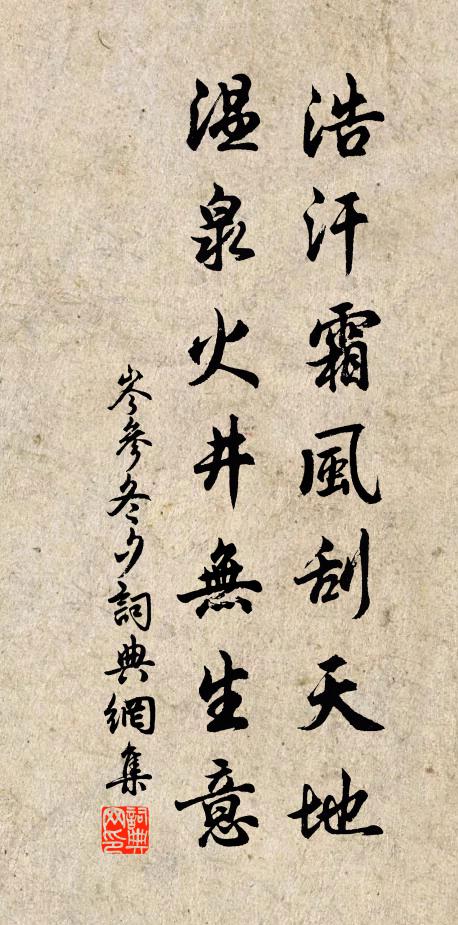 浩汗霜風刮天地
温泉火井無生意
岑參冬夕詞典網集
詞典网印